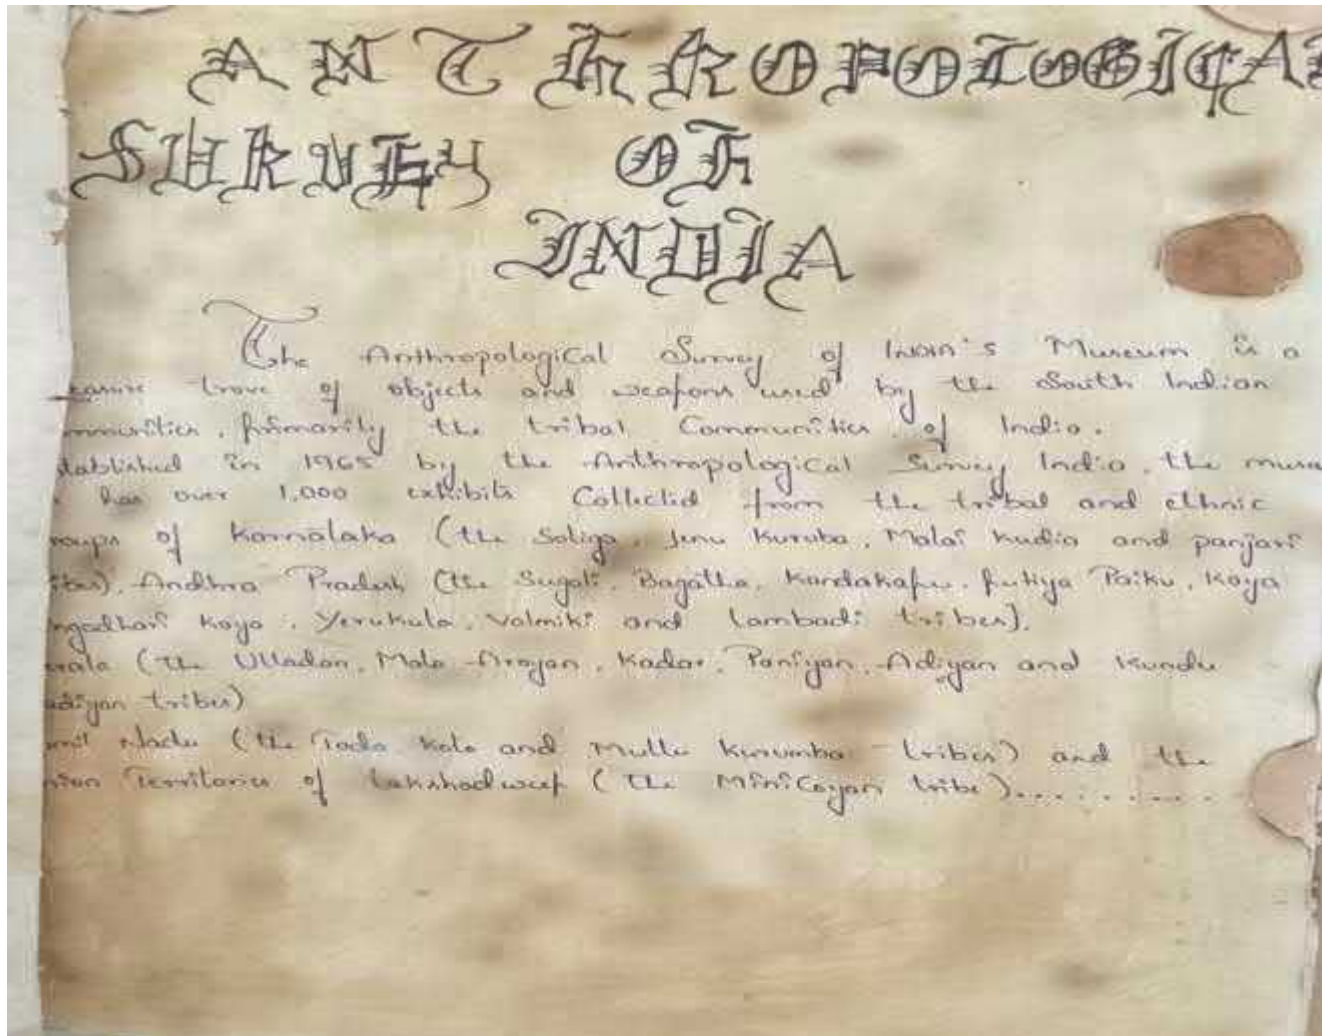 ANTHROPOLOGICAL
SURVEY OF
INDIA
The Anthropological Survey of INDIA'S Museum is a
easure trove of objects and weapons used by the South Indian
mmunities, primarily the tribal Communities, of India.
stablished in 1965 by the Anthropological Survey India, the muse
has over 1,000 exhibits Collected from the tribal and ethnic
roups of Karnataka (the Soliga, Jenu Kuruba, Malai Kudia and panjari
ibes), Andhra Pradesh (the Sugali, Bagatha, Kondakapu, Putiya Paiku, Koya
ngadhari Koya, Yerukula, Valmiki and Lambadi tribes),
erala (the Ulladan, Mala Arayan, Kadar, Paniyan, Adiyan and Kundu
adiyan tribes)
mil Nadu (the Toda Kota and Mullu Kurumba tribes) and the
nion Territories of Lakshadweep (the Minicoyan tribe)..........